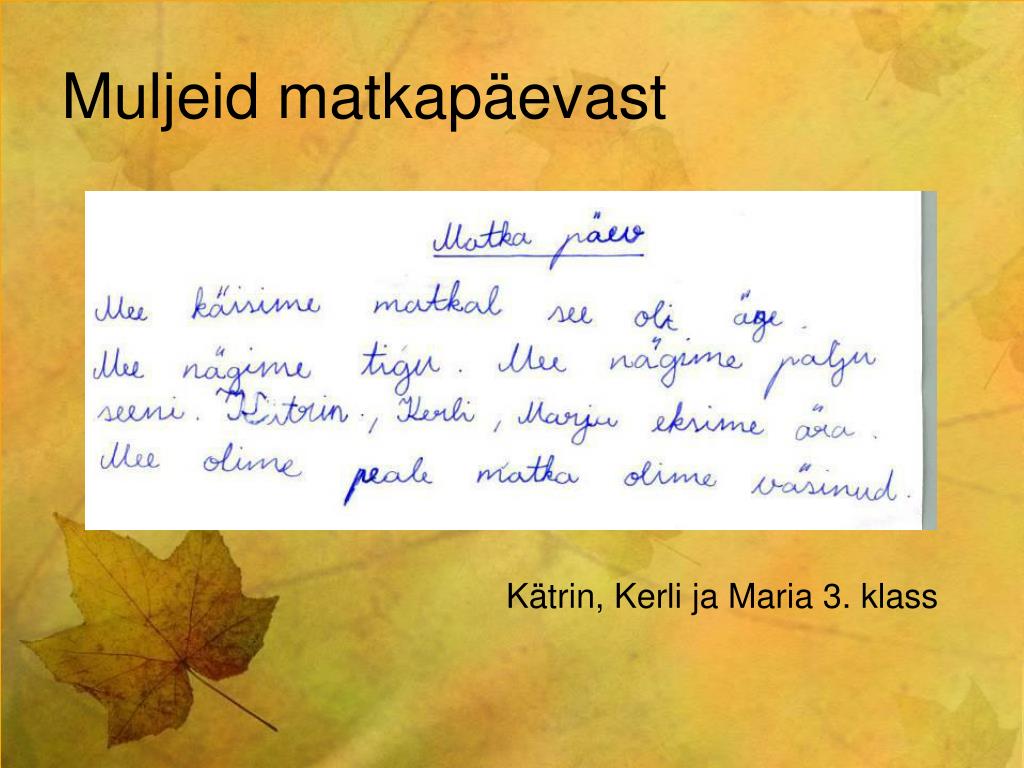 Muljeid matkapäevast
Matka päev
Mee käisime matkal see oli äge.
Mee nägime tigu. Mee nägime palju
seeni. Kätrin, Kerli, Marju eksime ära.
Mee olime peale matka olime väsinud.
Kätrin, Kerli ja Maria 3. klass